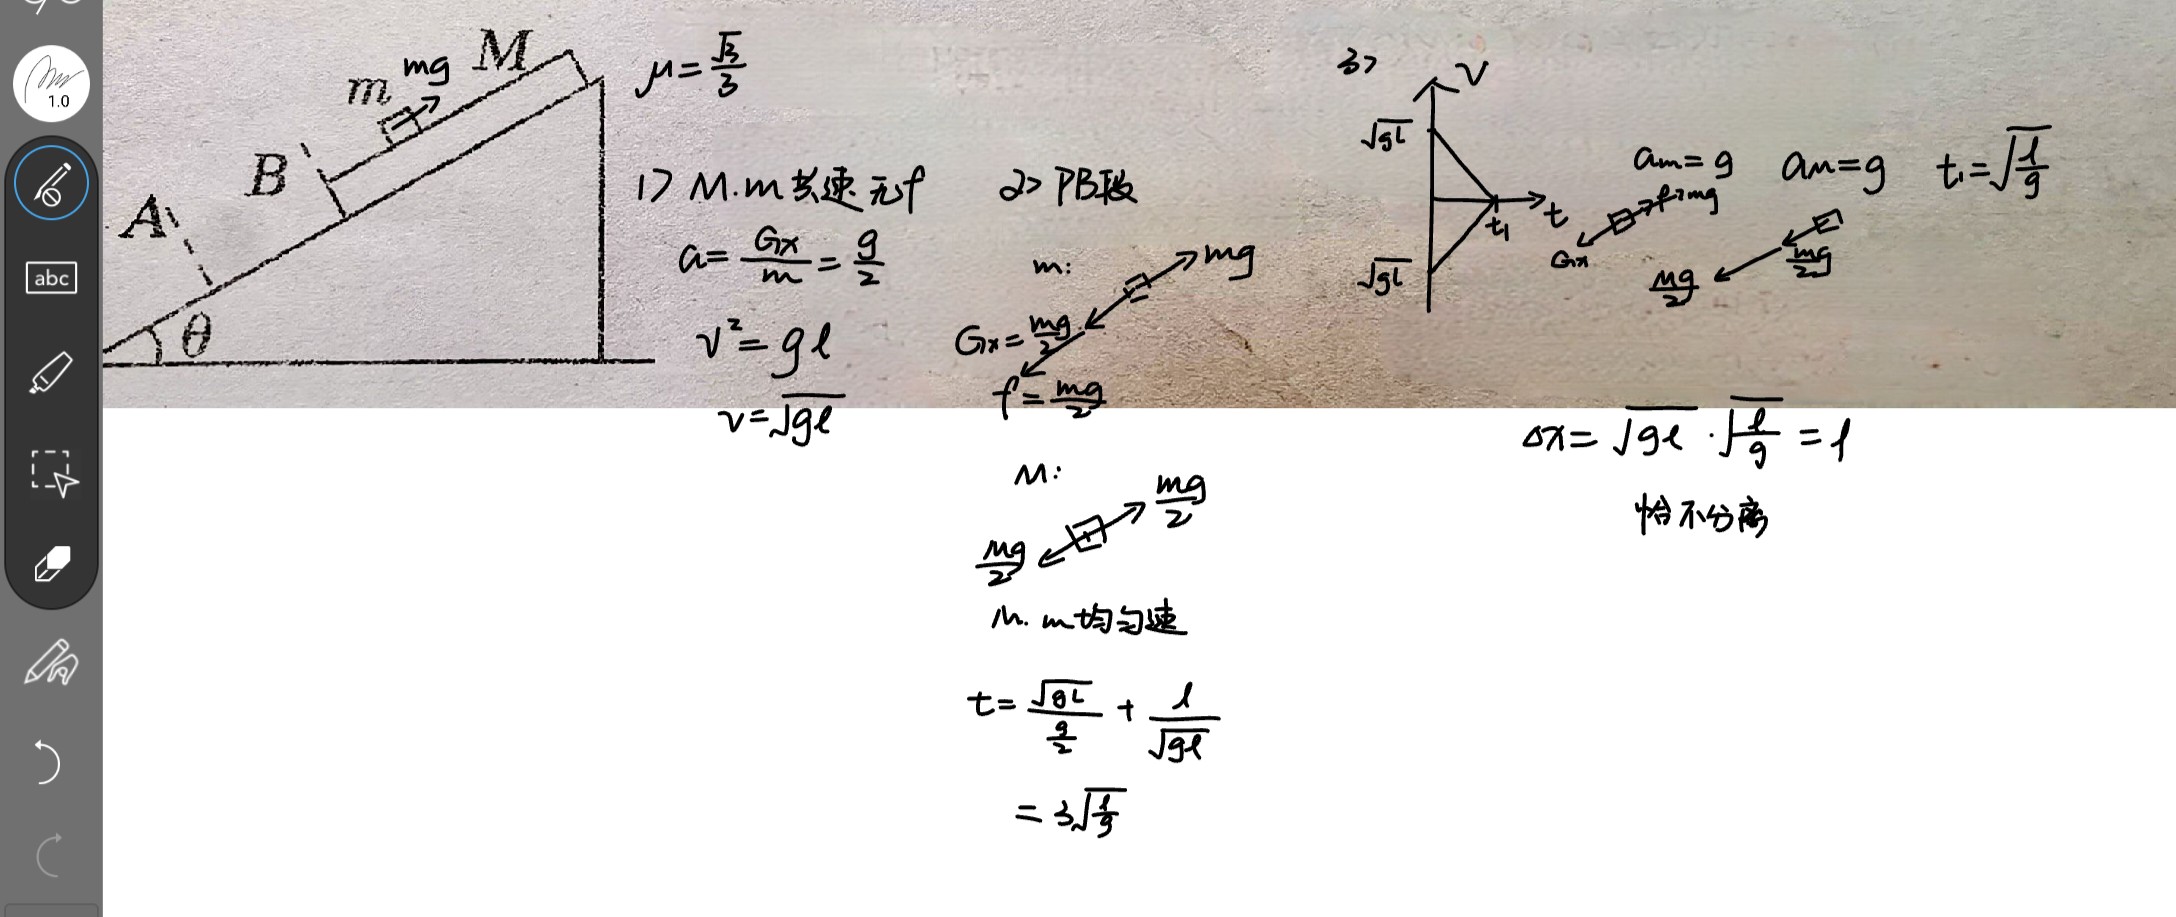 1.0
abc
m
mg
M
B
A
θ
μ=√3/3
1> M.m共速无f
a=Gx/m=g/2
v²=gl
v=√gl
2> PB段
m:
mg
Gx=mg/2
f=mg/2
M:
mg/2
Mg/2
M.m均匀速
t=√gL/(g/2)+l/√gl
=3√(l/g)
3>
v
√gL
t
t₁
√gL
am=g aM=g t₁=√(l/g)
Gx
Mg/2
mg/2
Δx=√gl·√(l/g)=l
恰不分离